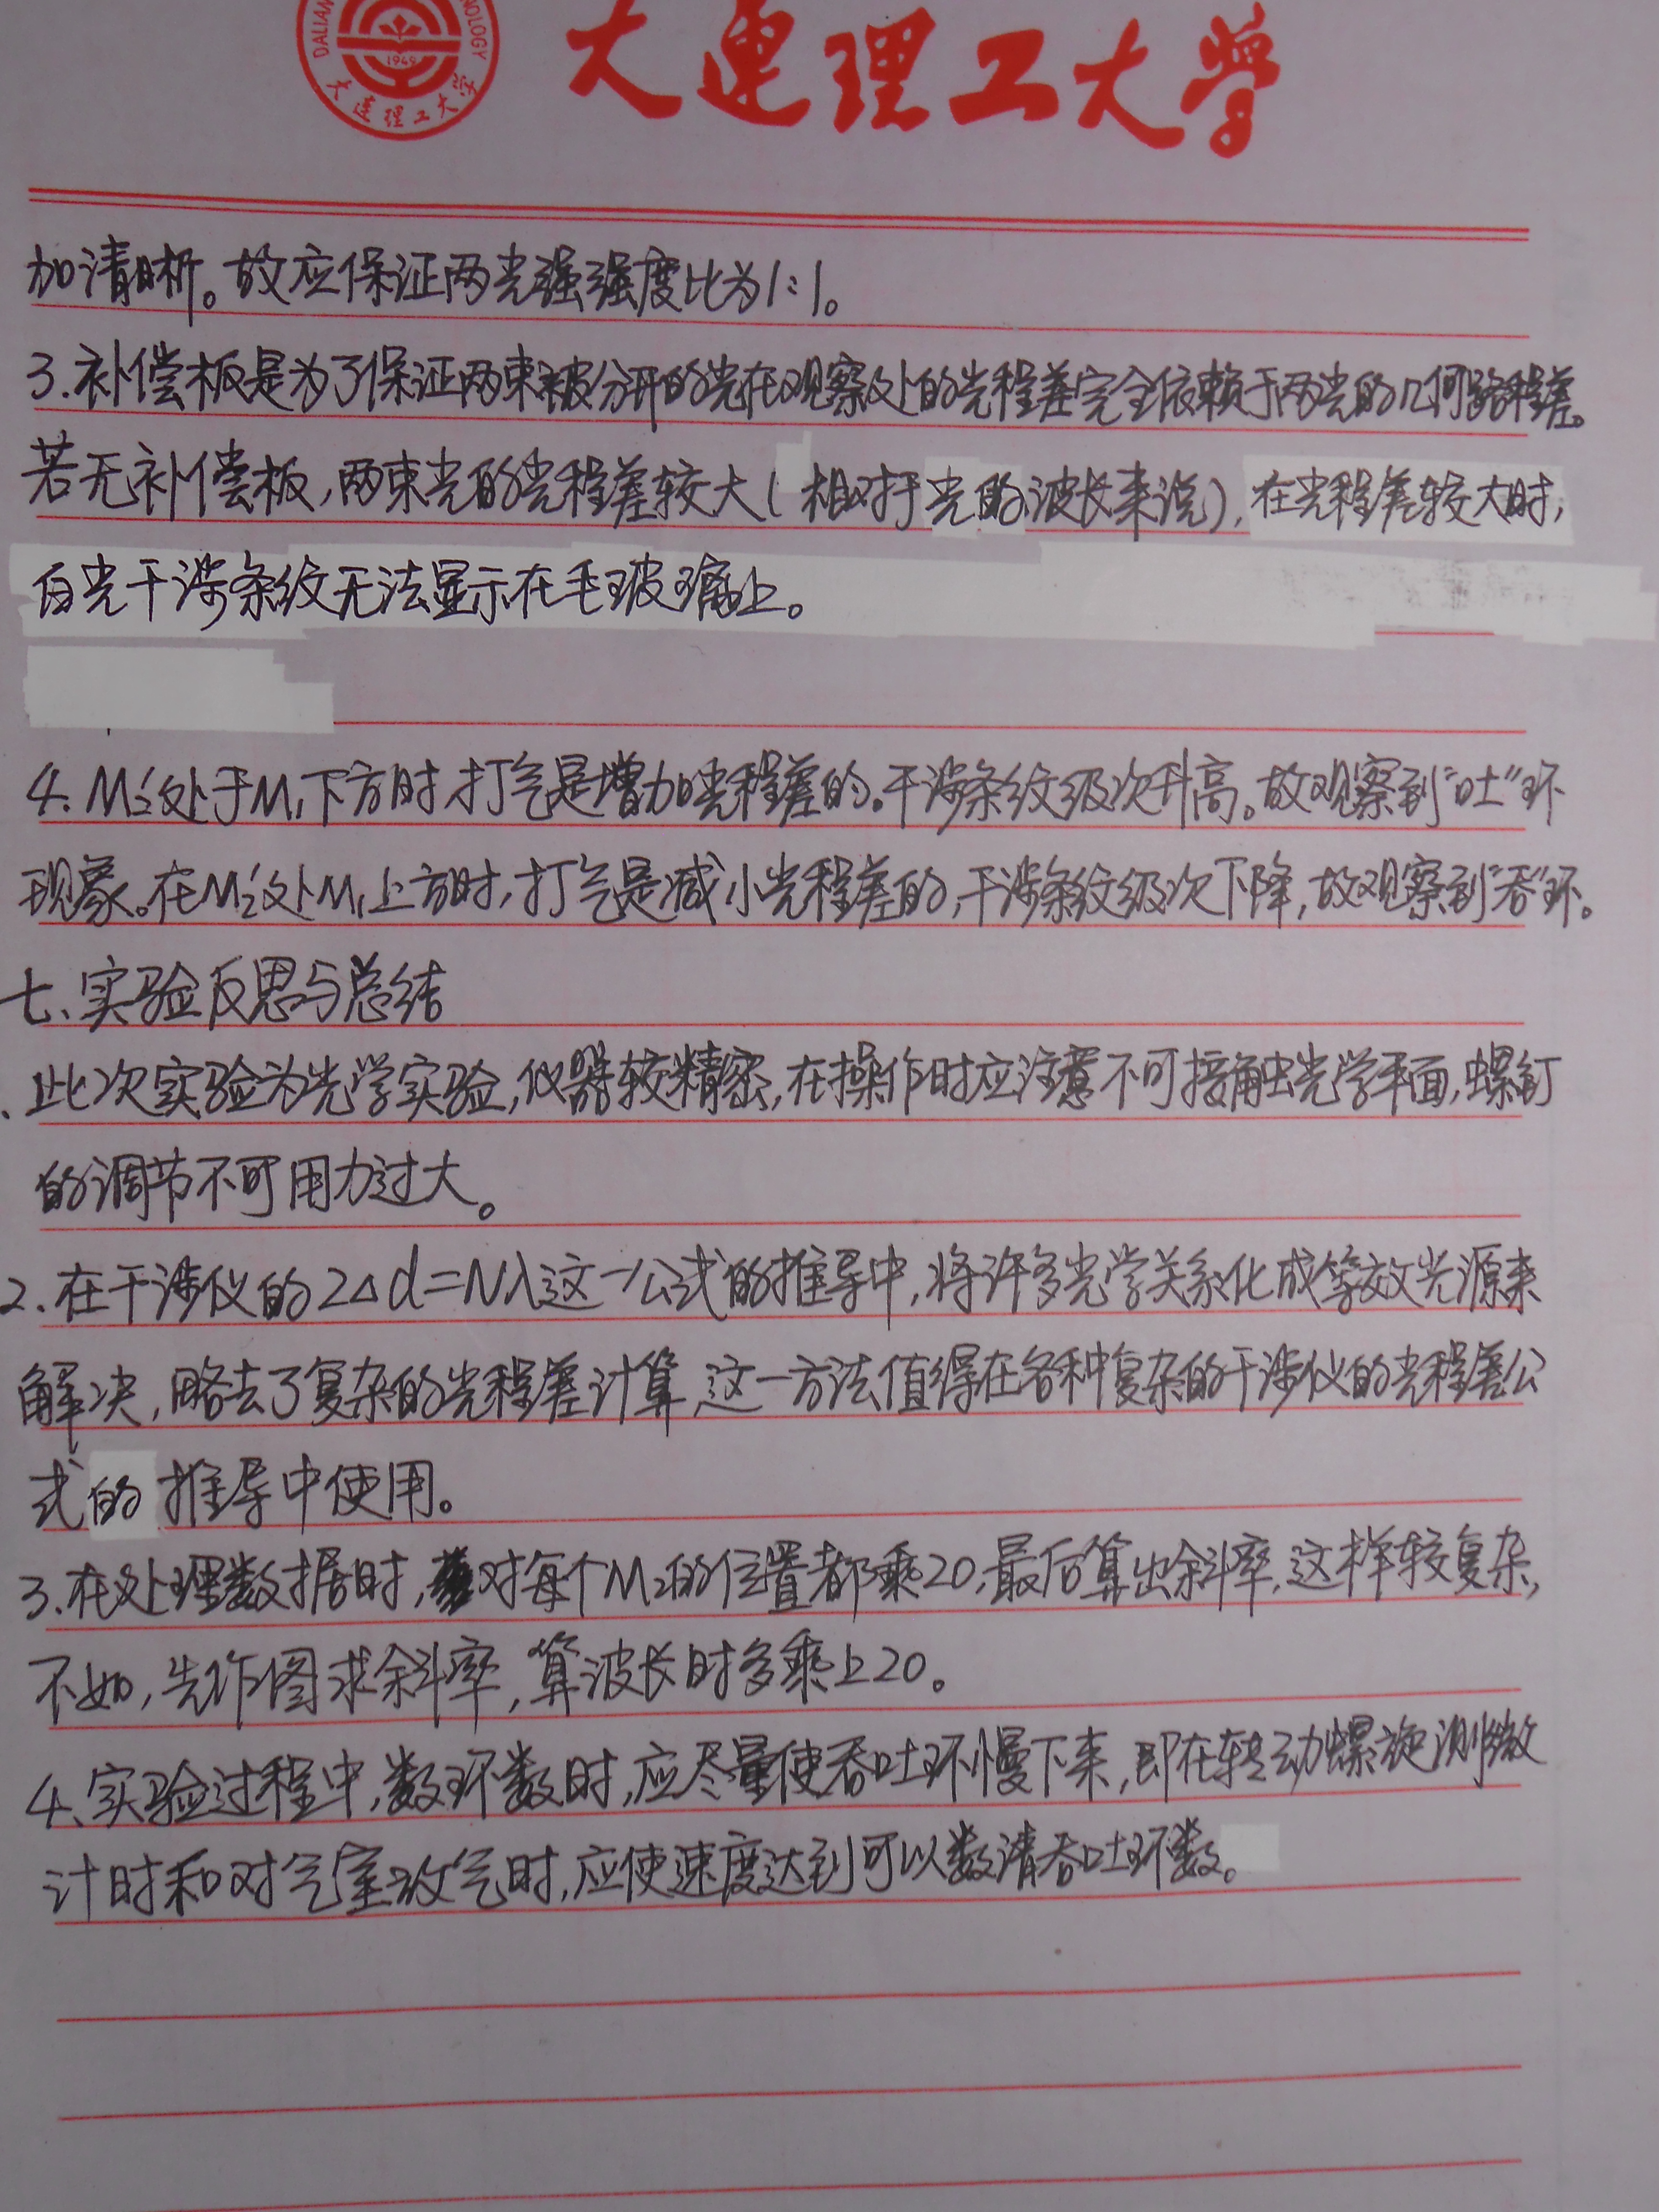 大连理工大学
DALIAN
NOLOGY
1949
大连理工大学
加清晰。故应保证两光强强度比为1:1。
3.补偿板是为了保证两束被分开的光在观察处的光程差完全依赖于两光的几何路程差。
若无补偿板,两束光的光程差较大(相对于光的波长来说),在光程差较大时,
白光干涉条纹无法显示在毛玻璃上。
4. M₂'处于M₁下方时,打气是增加光程差的。干涉条纹级次升高。故观察到"吐"环
现象。在M₂'处M₁上方时,打气是减小光程差的,干涉条纹级次下降,故观察到"吞"环。
七、实验反思与总结
、此次实验为光学实验,仪器较精密,在操作时应注意不可接触光学平面,螺钉
的调节不可用力过大。
2.在干涉仪的2Δd=Nλ这一公式的推导中,将许多光学关系化成等效光源来
解决,略去了复杂的光程差计算,这一方法值得在各种复杂的干涉仪的光程差公
式的推导中使用。
3.在处理数据时,对每个M₂的位置都乘20,最后算出斜率,这样较复杂,
不如,先作图求斜率,算波长时多乘上20。
4、实验过程中,数环数时,应尽量使吞吐环慢下来,即在转动螺旋测微
计时和对气室放气时,应使速度达到可以数清吞吐环数。